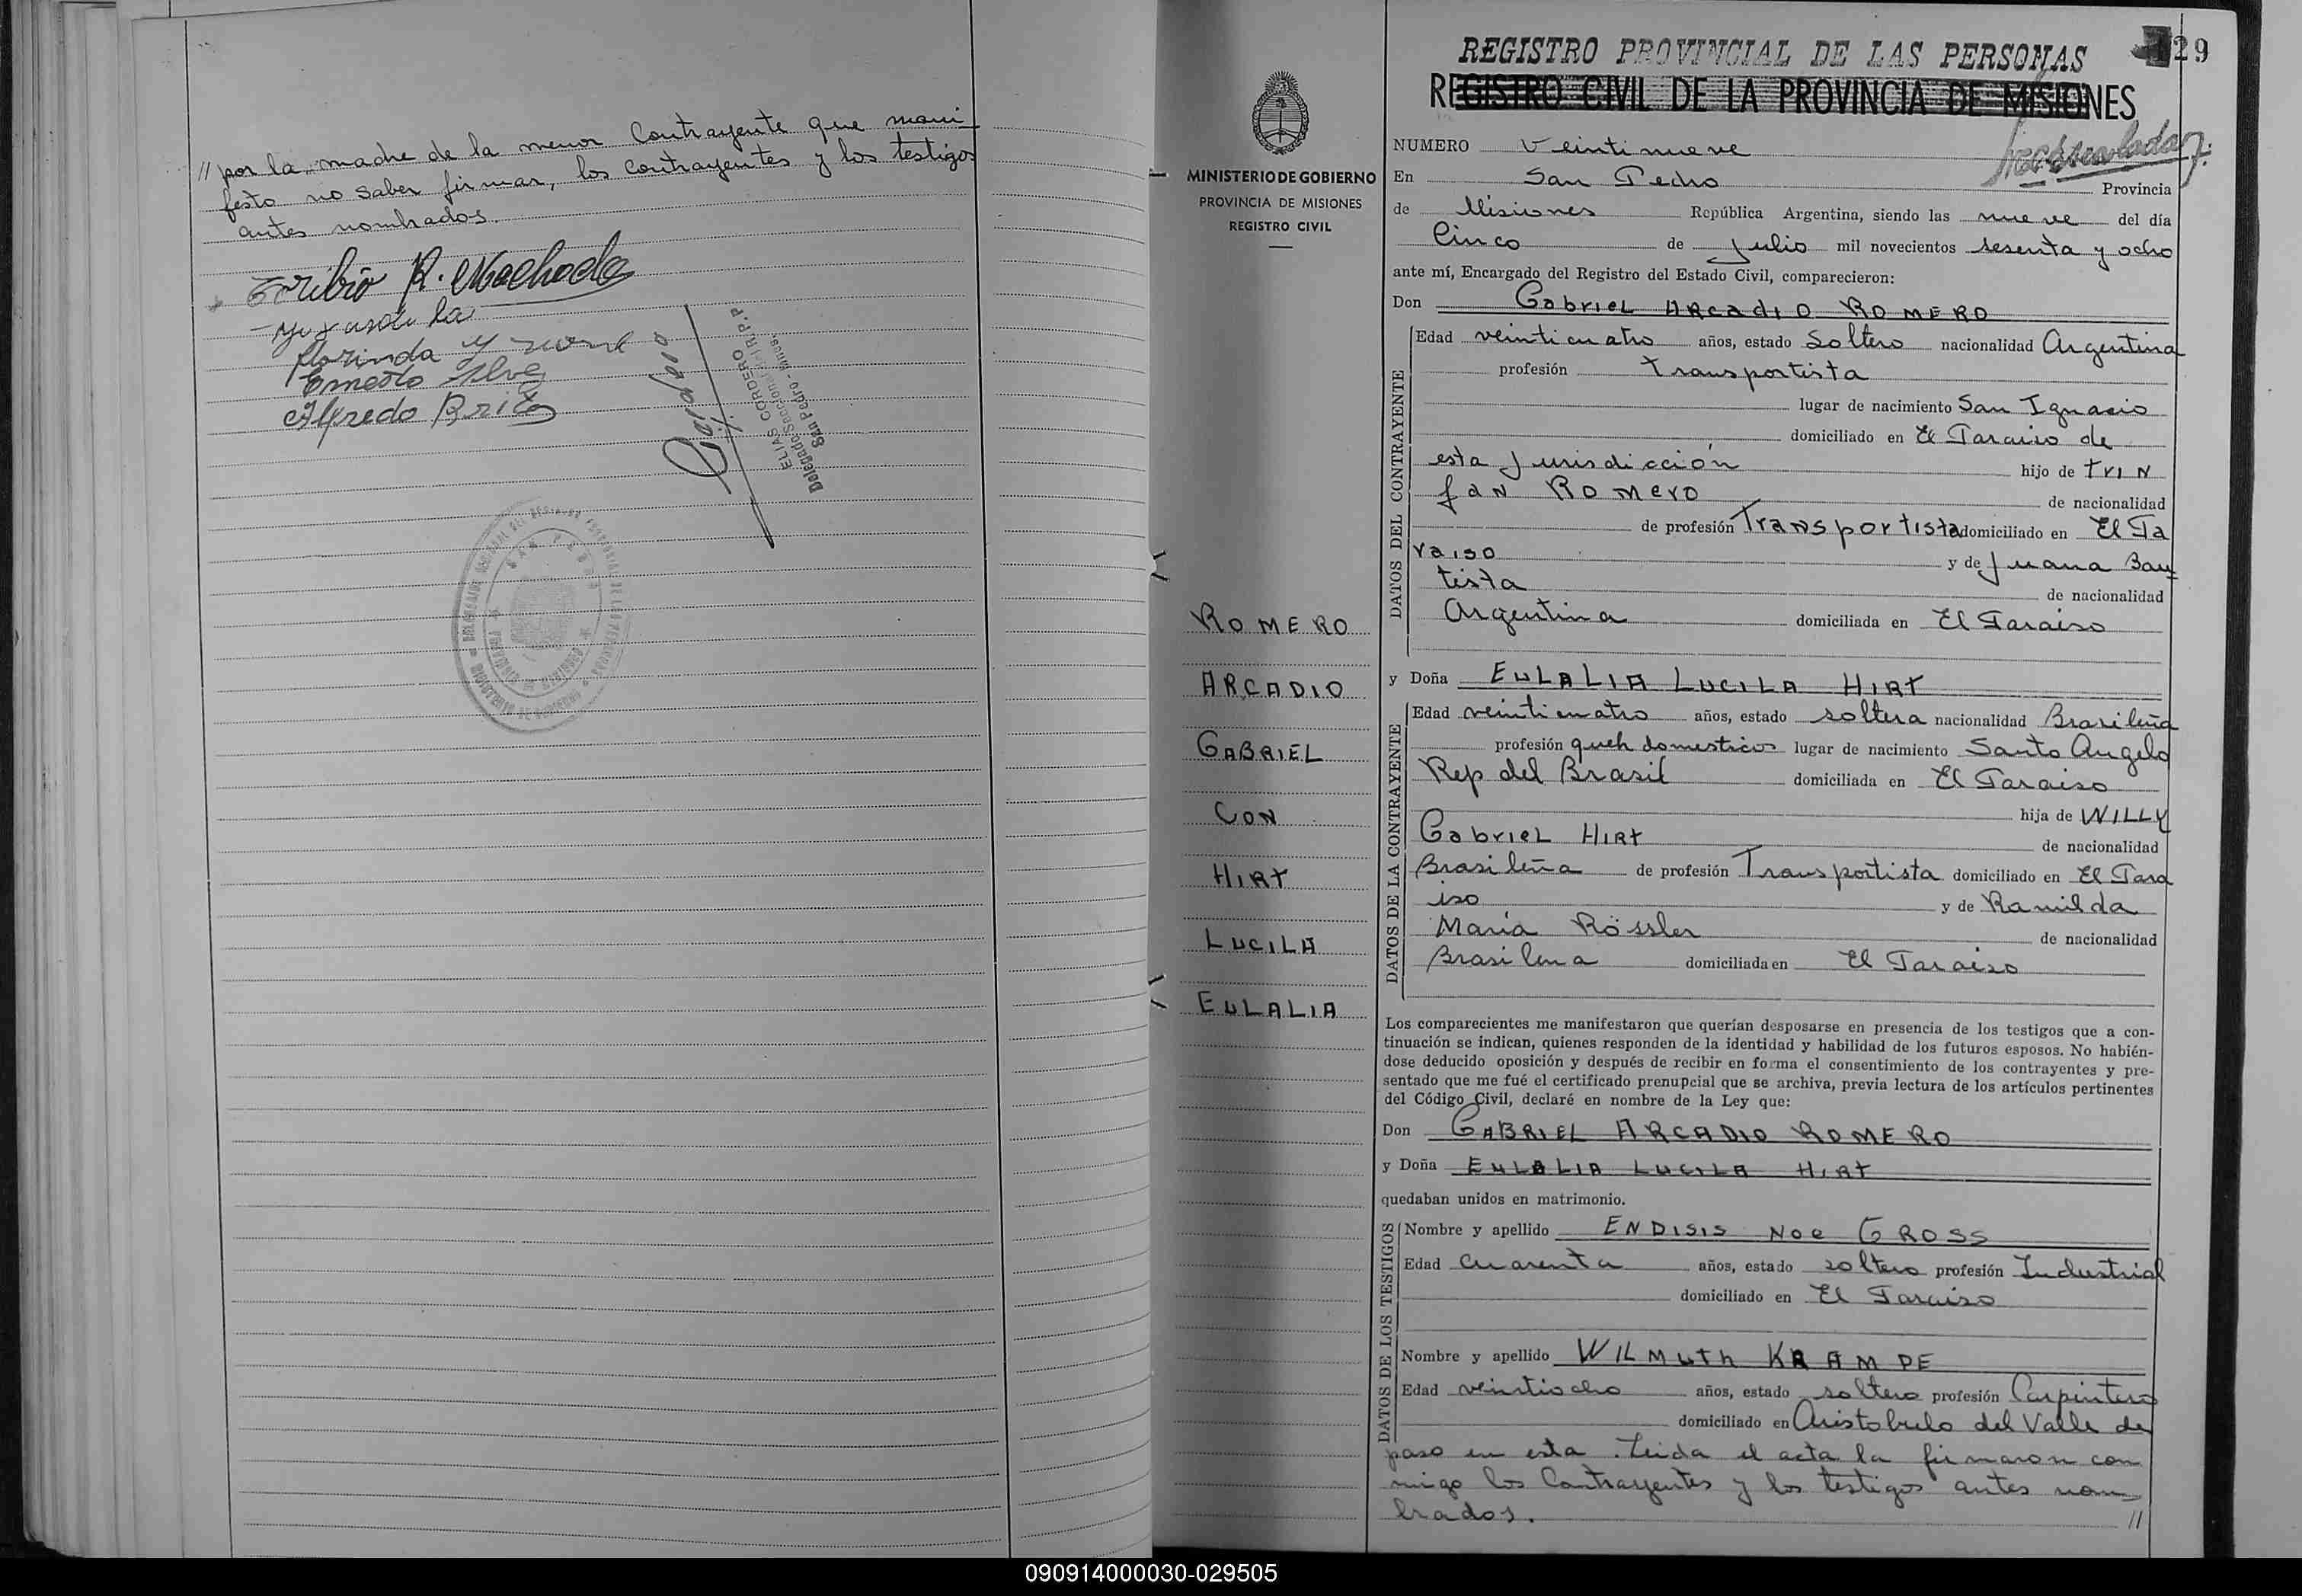 // por la madre de la menor Contrayente que mani
festo no saber firmar, los contrayentes y los testigos
antes nombrados.
R. Machado
florinda
Ernesto Alvez
Alfredo Brites
ELIAS CORDERO
San Pedro - Mnes.
REGISTRO PROVINCIAL DE LAS PERSONAS
29
REGISTRO CIVIL DE LA PROVINCIA DE MISIONES
MINISTERIO DE GOBIERNO
PROVINCIA DE MISIONES
REGISTRO CIVIL
ROMERO
ARCADIO
GABRIEL
CON
HIRT
LUCILA
EULALIA
NUMERO Veintinueve
En San Pedro Provincia
de Misiones República Argentina, siendo las nueve del día
Cinco de Julio mil novecientos sesenta y ocho
ante mí, Encargado del Registro del Estado Civil, comparecieron:
Don Gabriel ARCadIO ROMERO
DATOS DEL CONTRAYENTE
Edad veinticuatro años, estado Soltero nacionalidad Argentina
profesión transportista
lugar de nacimiento San Ignacio
domiciliado en El Paraiso de
esta Jurisdicción hijo de TRIN
faN Romero de nacionalidad
de profesión Transportista domiciliado en El Pa
raiso y de Juana Bau
tista de nacionalidad
Argentina domiciliada en El Paraiso
y Doña EULALIA LUCILA HIRT
DATOS DE LA CONTRAYENTE
Edad veinticuatro años, estado soltera nacionalidad Brasileña
profesión queh domesticos lugar de nacimiento Santo Angelo
Rep del Brasil domiciliada en El Paraiso
hija de WILLY
Gabriel HIRT de nacionalidad
Brasileña de profesión Transportista domiciliado en El Para
iso y de Ramilda
María Rössler de nacionalidad
Brasilena domiciliada en El Paraiso
Los comparecientes me manifestaron que querían desposarse en presencia de los testigos que a con-
tinuación se indican, quienes responden de la identidad y habilidad de los futuros esposos. No habién-
dose deducido oposición y después de recibir en forma el consentimiento de los contrayentes y pre-
sentado que me fué el certificado prenupcial que se archiva, previa lectura de los artículos pertinentes
del Código Civil, declaré en nombre de la Ley que:
Don GABRIEL ARCADIO ROMERO
y Doña EULALIA LUCILA HIRT
quedaban unidos en matrimonio.
DATOS DE LOS TESTIGOS
Nombre y apellido ENDISIS Noe GROSS
Edad Cuarenta años, estado soltero profesión Industrial
domiciliado en El Paraiso
Nombre y apellido WILMUTh KRAMPE
Edad veintiocho años, estado soltero profesión Carpintero
domiciliado en Aristobulo del Valle de
paso en esta. Leida el acta la firmaron con
migo los Contrayentes y los testigos antes nom
brados. //
090914000030-029505